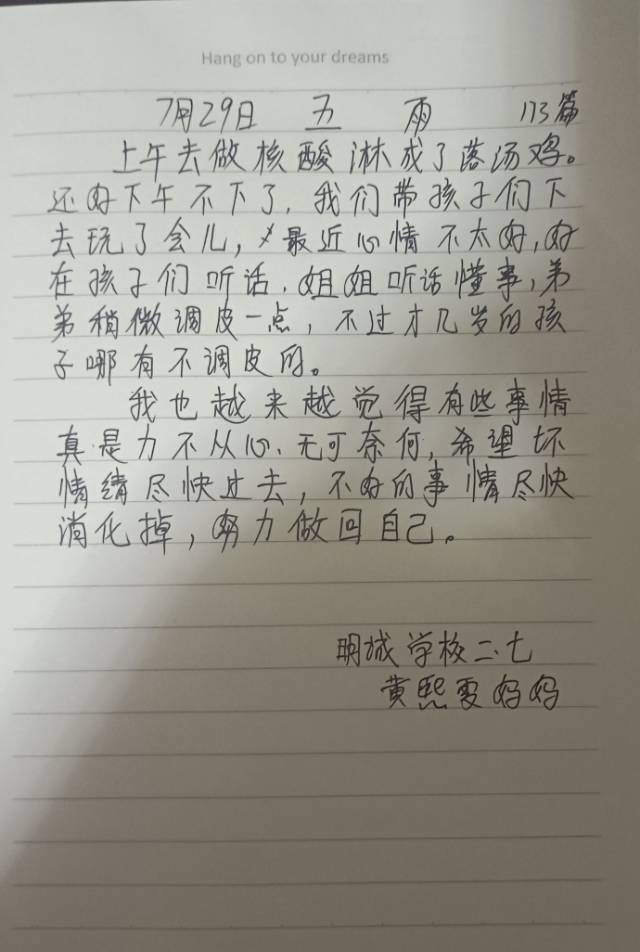 Hang on to your dreams
7月29日 五 雨 173篇
上午去做核酸淋成了落汤鸡。
还好下午不下了,我们带孩子们下
去玩了会儿,最近心情不太好,好
在孩子们听话.姐姐听话懂事,弟
弟稍微调皮一点,不过才几岁的孩
子哪有不调皮的。
我也越来越觉得有些事情
真是力不从心.无可奈何,希望坏
情绪尽快过去,不好的事情尽快
消化掉,努力做回自己。
明城学校二.七
黄熙雯妈妈